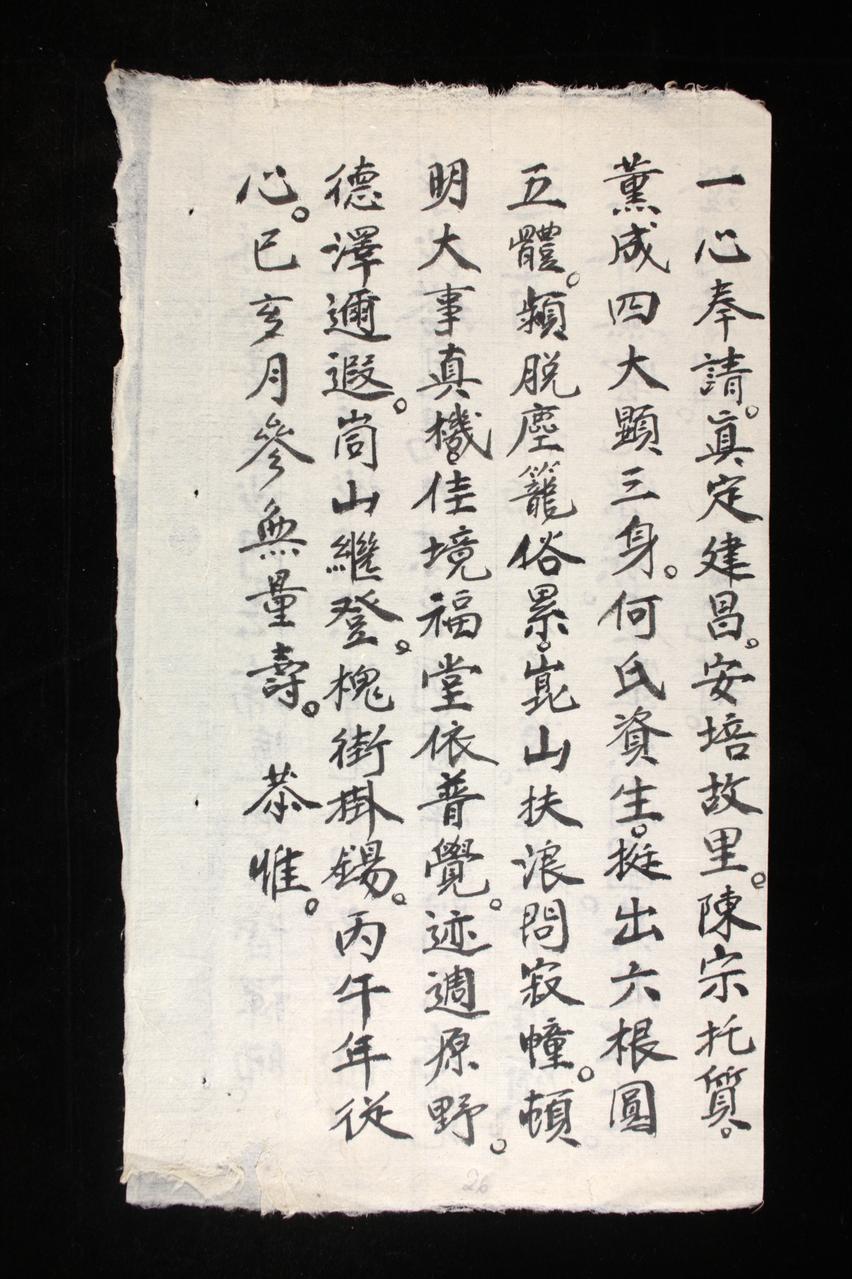 一心奉請。真定建昌。安培故里。陳宗托質。
薰成四大顕三身。何氏資生。挺出六根圓
五體。頻脱塵籠俗累。崑山扶浪問寂幢。頓
明大事真機。佳境福堂依普覺。迹週原野。
德澤邇遐。崗山繼登。槐街掛錫。丙午年從
心。巳亥月參無量壽。恭惟。
26